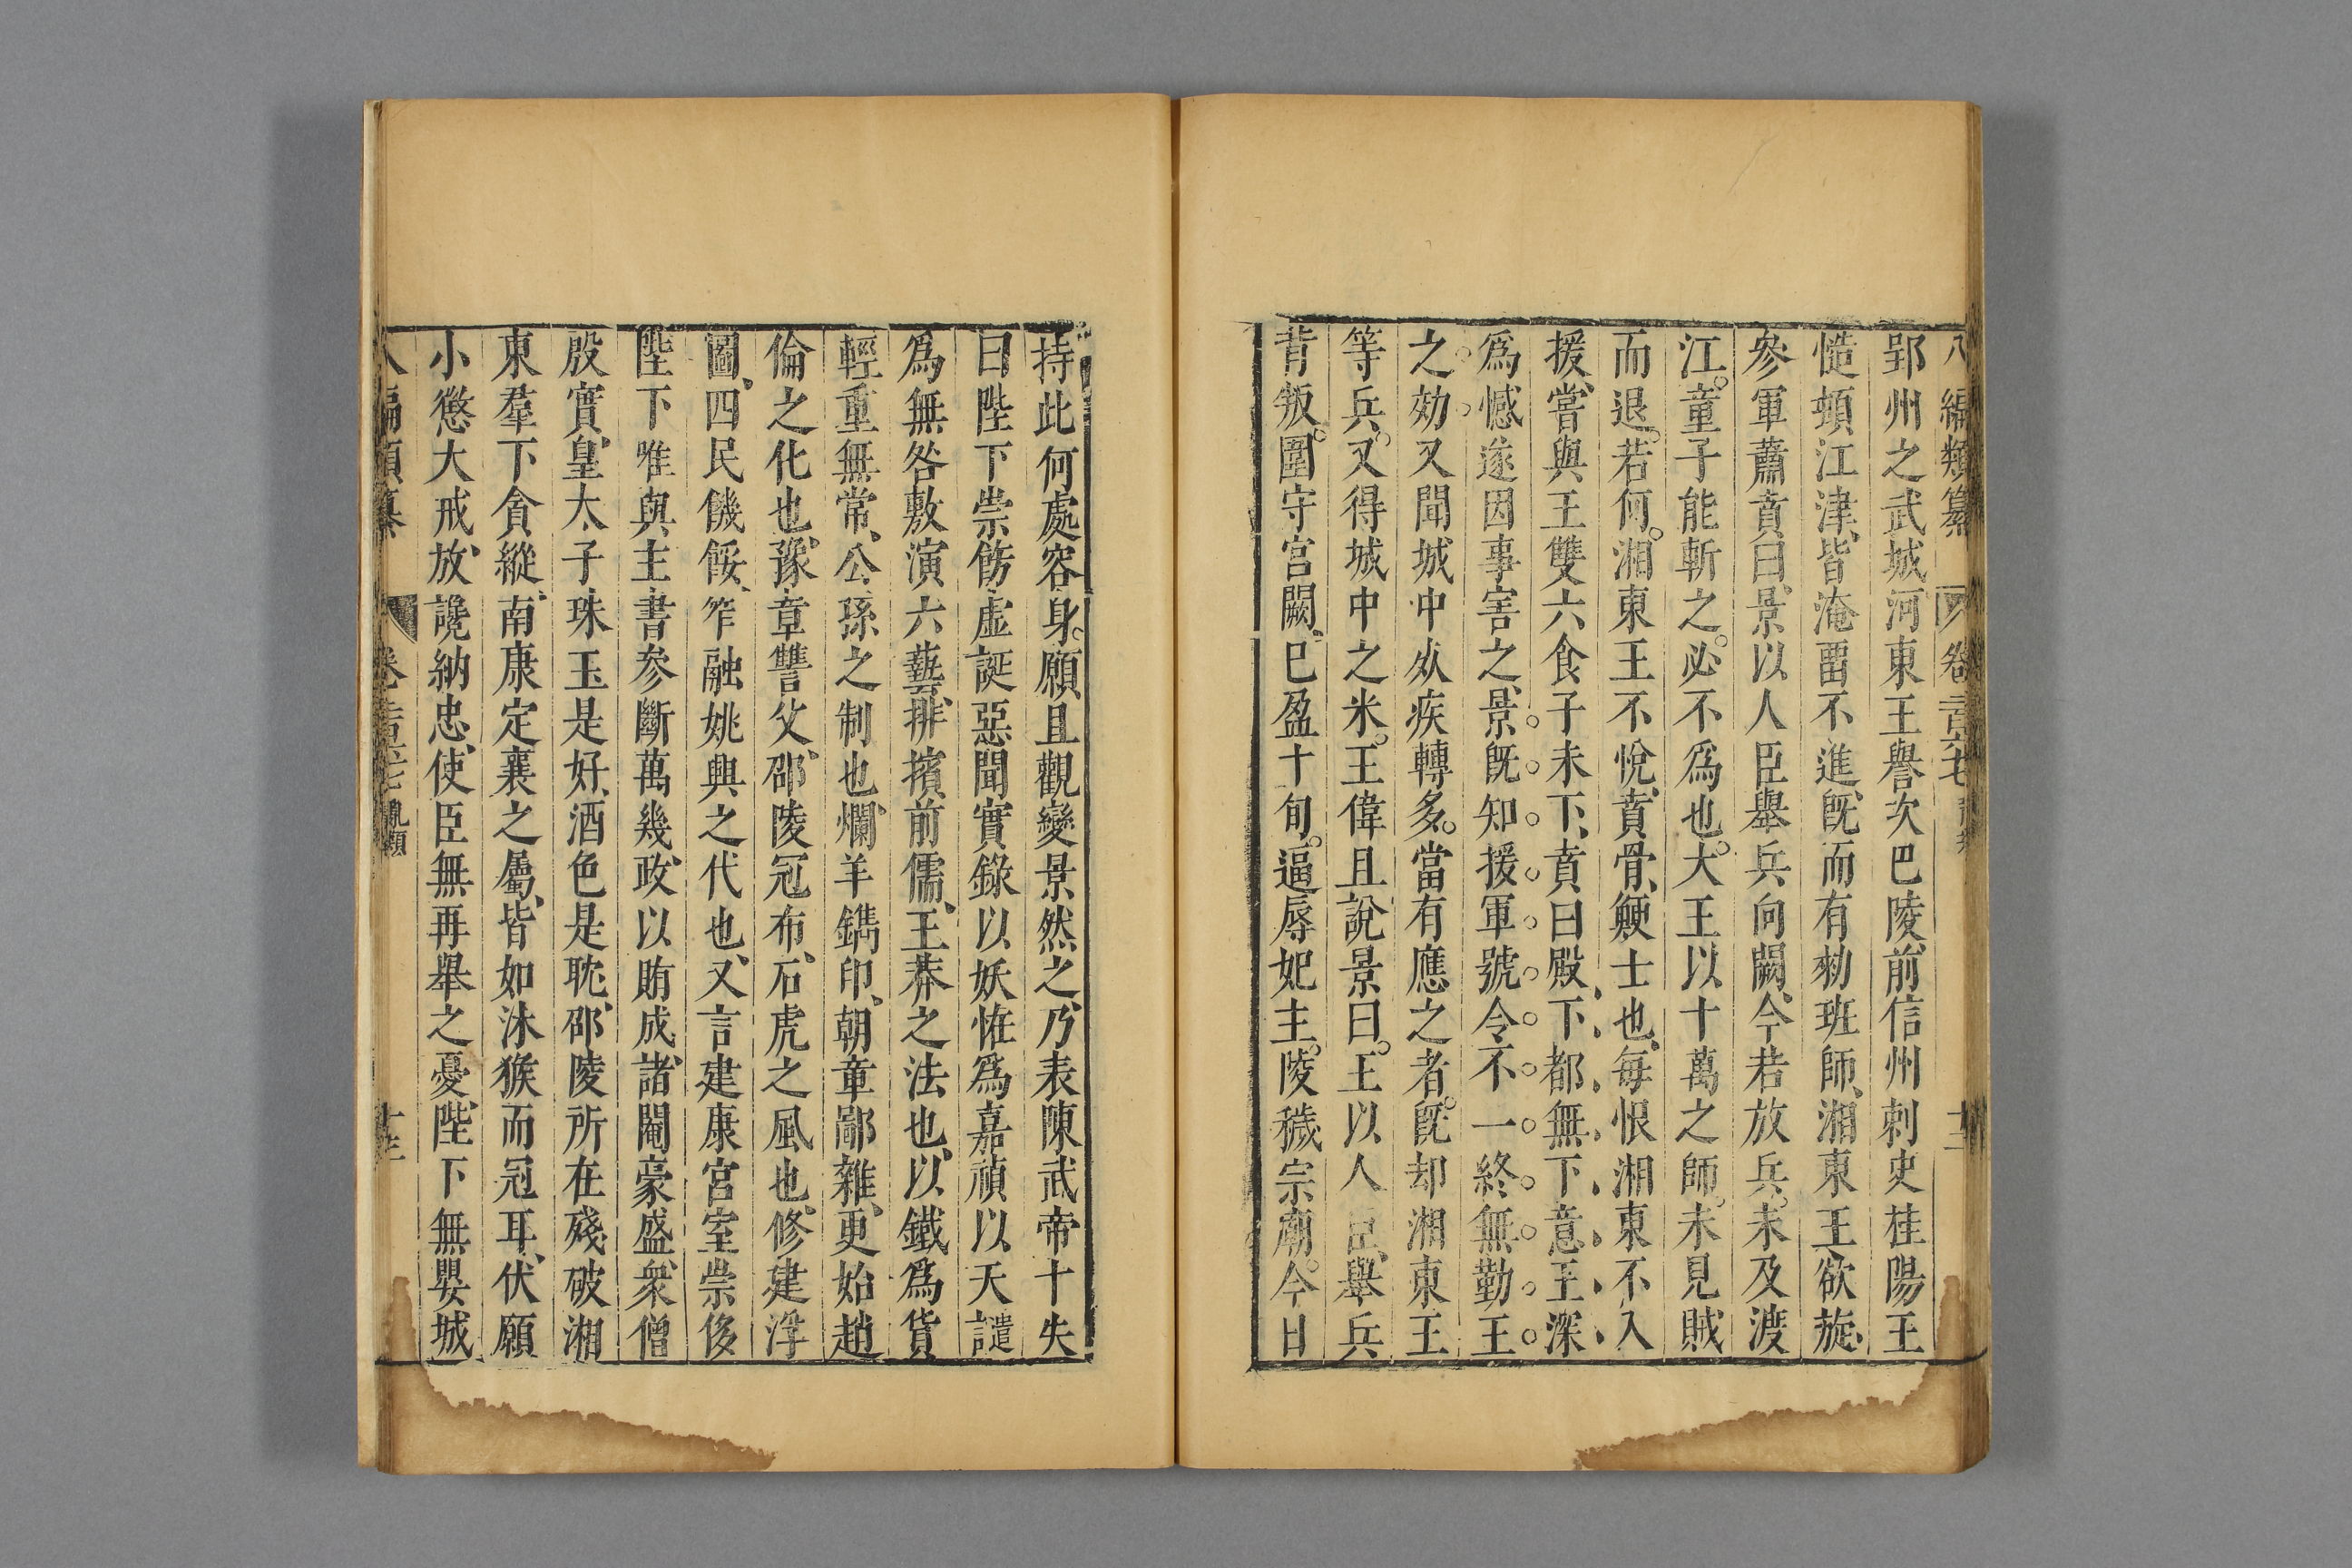 八編類纂 卷二百六七 十二
郢州之武城河東王譽次巴陵前信州刺史桂陽王
慥頓江津皆淹畱不進旣而有勑班師湘東王欲旋
參軍蕭賁曰景以人臣舉兵向闕今若放兵未及渡
江童子能斬之必不爲也大王以十萬之師未見賊
而退若何湘東王不悅賁骨鯁士也每恨湘東不入
援嘗與王雙六食子未下賁曰殿下都無下意王深
爲憾遂因事害之景旣知援軍號令不一終無勤王
之効又聞城中死疾轉多當有應之者旣却湘東王
等兵又得城中之米王偉且說景曰王以人臣舉兵
背叛圍守宫闕已盈十旬逼辱妃主陵穢宗廟今日
持此何處容身願且觀變景然之乃表陳武帝十失
曰陛下崇飾虛誕惡聞實錄以妖恠爲嘉禎以天譴
爲無咎敷演六藝排擯前儒王莽之法也以鐵爲貨
輕重無常公孫之制也爛羊鐫印朝章鄙雜更始趙
倫之化也豫章讐父邵陵冠布石虎之風也修建浮
圖四民饑餒笮融姚興之代也又言建康宫室崇侈
陛下唯與主書參斷萬幾政以賄成諸閹豪盛衆僧
殷實皇太子珠玉是好酒色是耽邵陵所在殘破湘
東羣下貪縱南康定襄之屬皆如沐猴而冠耳伏願
小懲大戒放讒納忠使臣無再舉之憂陛下無嬰城
八編類纂 卷二百六七 亂類 十三